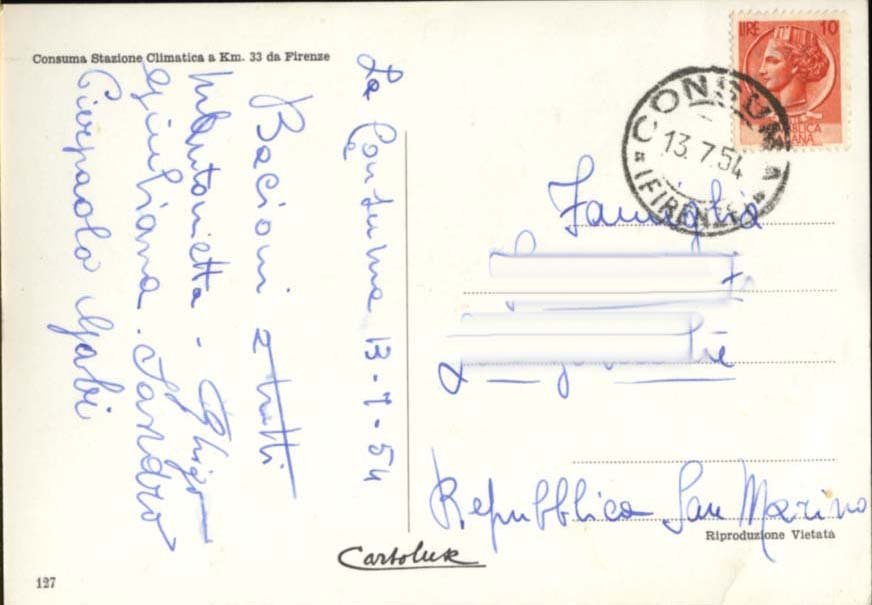 Consuma Stazione Climatica a Km. 33 da Firenze
La Consuma 13-7-54
Bacioni a tutti
Antonietta - Ghigo
Giuliana. Sandro
Pierpaolo Gabi
LIRE 10
REPUBBLICA
ITALIANA
CONSUMA
13.7.54
(FIRENZE)
Famiglia
Repubblica San Marino
Riproduzione Vietata
Cartolux
127